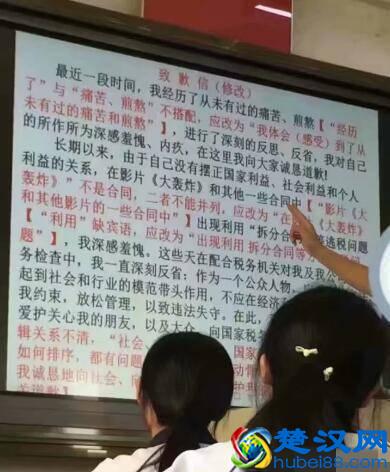 致歉信（修改）
最近一段时间，我经历了从未有过的痛苦、煎熬【“经历
了”与“痛苦、煎熬”不搭配，应改为“我体会（感受）到了从
未有过的痛苦和煎熬”】，进行了深刻的反思、反省，我对自己
的所作所为深感羞愧、内疚，在这里我向大家诚恳道歉!
长期以来，由于自己没有摆正国家利益、社会利益和个人
利益的关系，在影片《大轰炸》和其他一些合同中【“影片《大
轰炸》”不是合同，二者不能并列，应改为“在影片《大轰炸》
和其他影片的一些合同中”】出现利用“拆分合同”等逃税问题
【“利用”缺宾语，应改为“出现利用 拆分合同等
题”】，我深感羞愧。这些天在配合税务机关对我及我公
务检查中，我一直深刻反省：作为一个公众人物，应
起到社会和行业的模范带头作用，不应在经济
我约束，放松管理，以致违法失守。在此，
爱护关心我的朋友，以及大众，向国家税务
辑关系不清，“社会、 国家
如何排序，都有问题
我诚恳地向社会、
关道歉】
楚汉网
hubei88.com